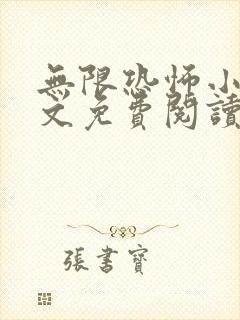 無限恐怖小
文免費閱讀
張書寶